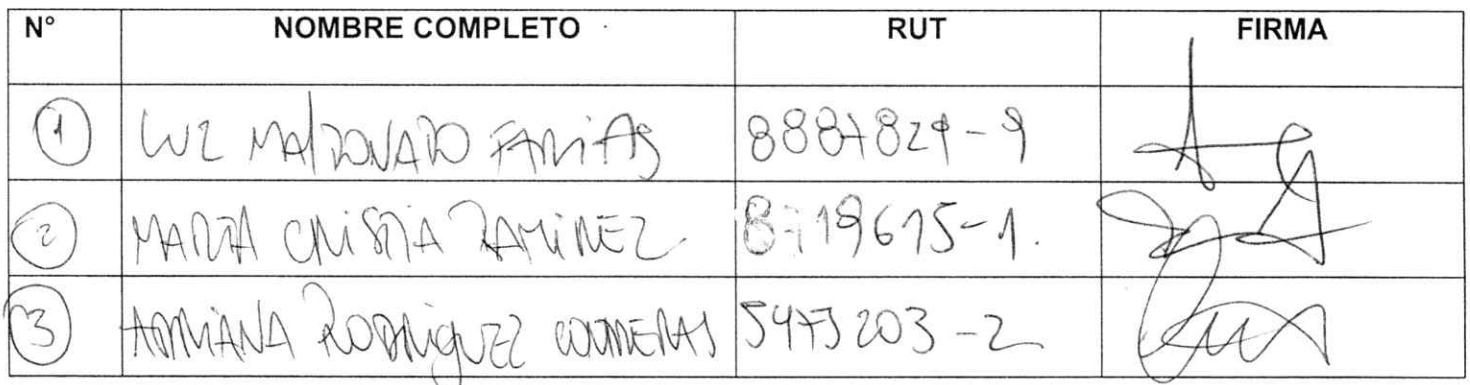 N° NOMBRE COMPLETO RUT FIRMA
1 LUZ MALDONADO FARIAS 8887829-9
2 MARTA CRISTIA RAMIREZ 8719615-1.
3 ADRIANA RODRIGUEZ CONTRERAS 5473203-2